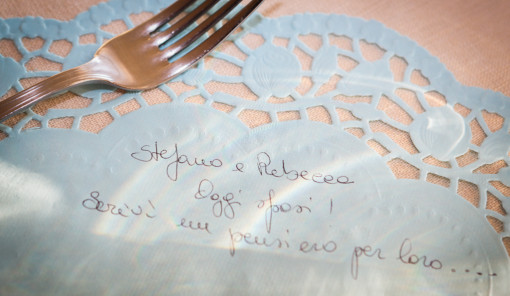 Stefano e Rebecca
Oggi sposi!
Scrivi un pensiero per loro.....